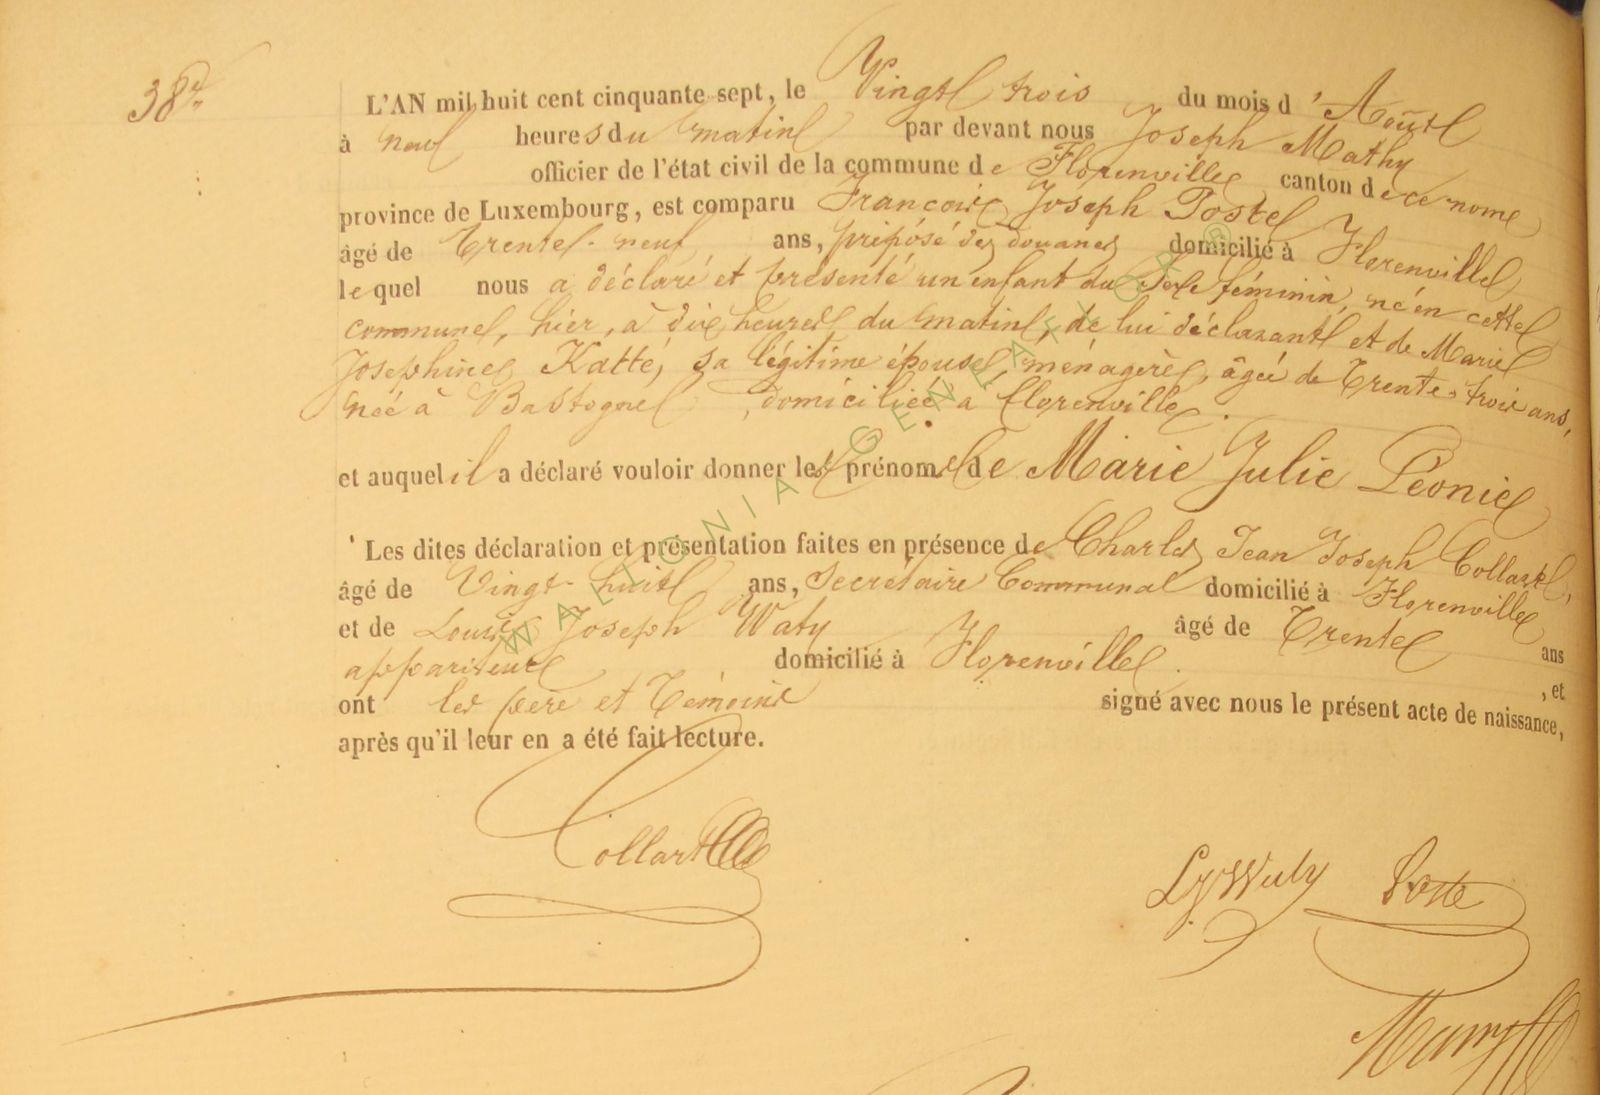 38e.
L'AN mil huit cent cinquante sept, le Vingt trois du mois d'Août
à neuf heures du matin par devant nous Joseph Mathy
officier de l'état civil de la commune de Florenville canton de ce nom
province de Luxembourg, est comparu François Joseph Postel
âgé de Trente-neuf ans, préposé des douanes domicilié à Florenville
lequel nous a déclaré et présenté un enfant du Sexe féminin, né en cette
commune, hier, à dix heures du matin, de lui déclarant et de Marie
Josephine Katté, sa légitime épouse, ménagère, âgée de Trente-trois ans,
née à Bastogne, domiciliée à florenville.
et auquel il a déclaré vouloir donner les prénoms de Marie Julie Léonie
Les dites déclaration et présentation faites en présence de Charles Jean Joseph Collart,
âgé de Vingt-huit ans, Secrétaire Communal domicilié à Florenville
et de Louis Joseph Waty âgé de Trente ans
appariteur domicilié à Florenville. , et
ont les père et Témoins signé avec nous le présent acte de naissance,
après qu'il leur en a été fait lecture.
Collart
WALLONIA GENEALOGIE